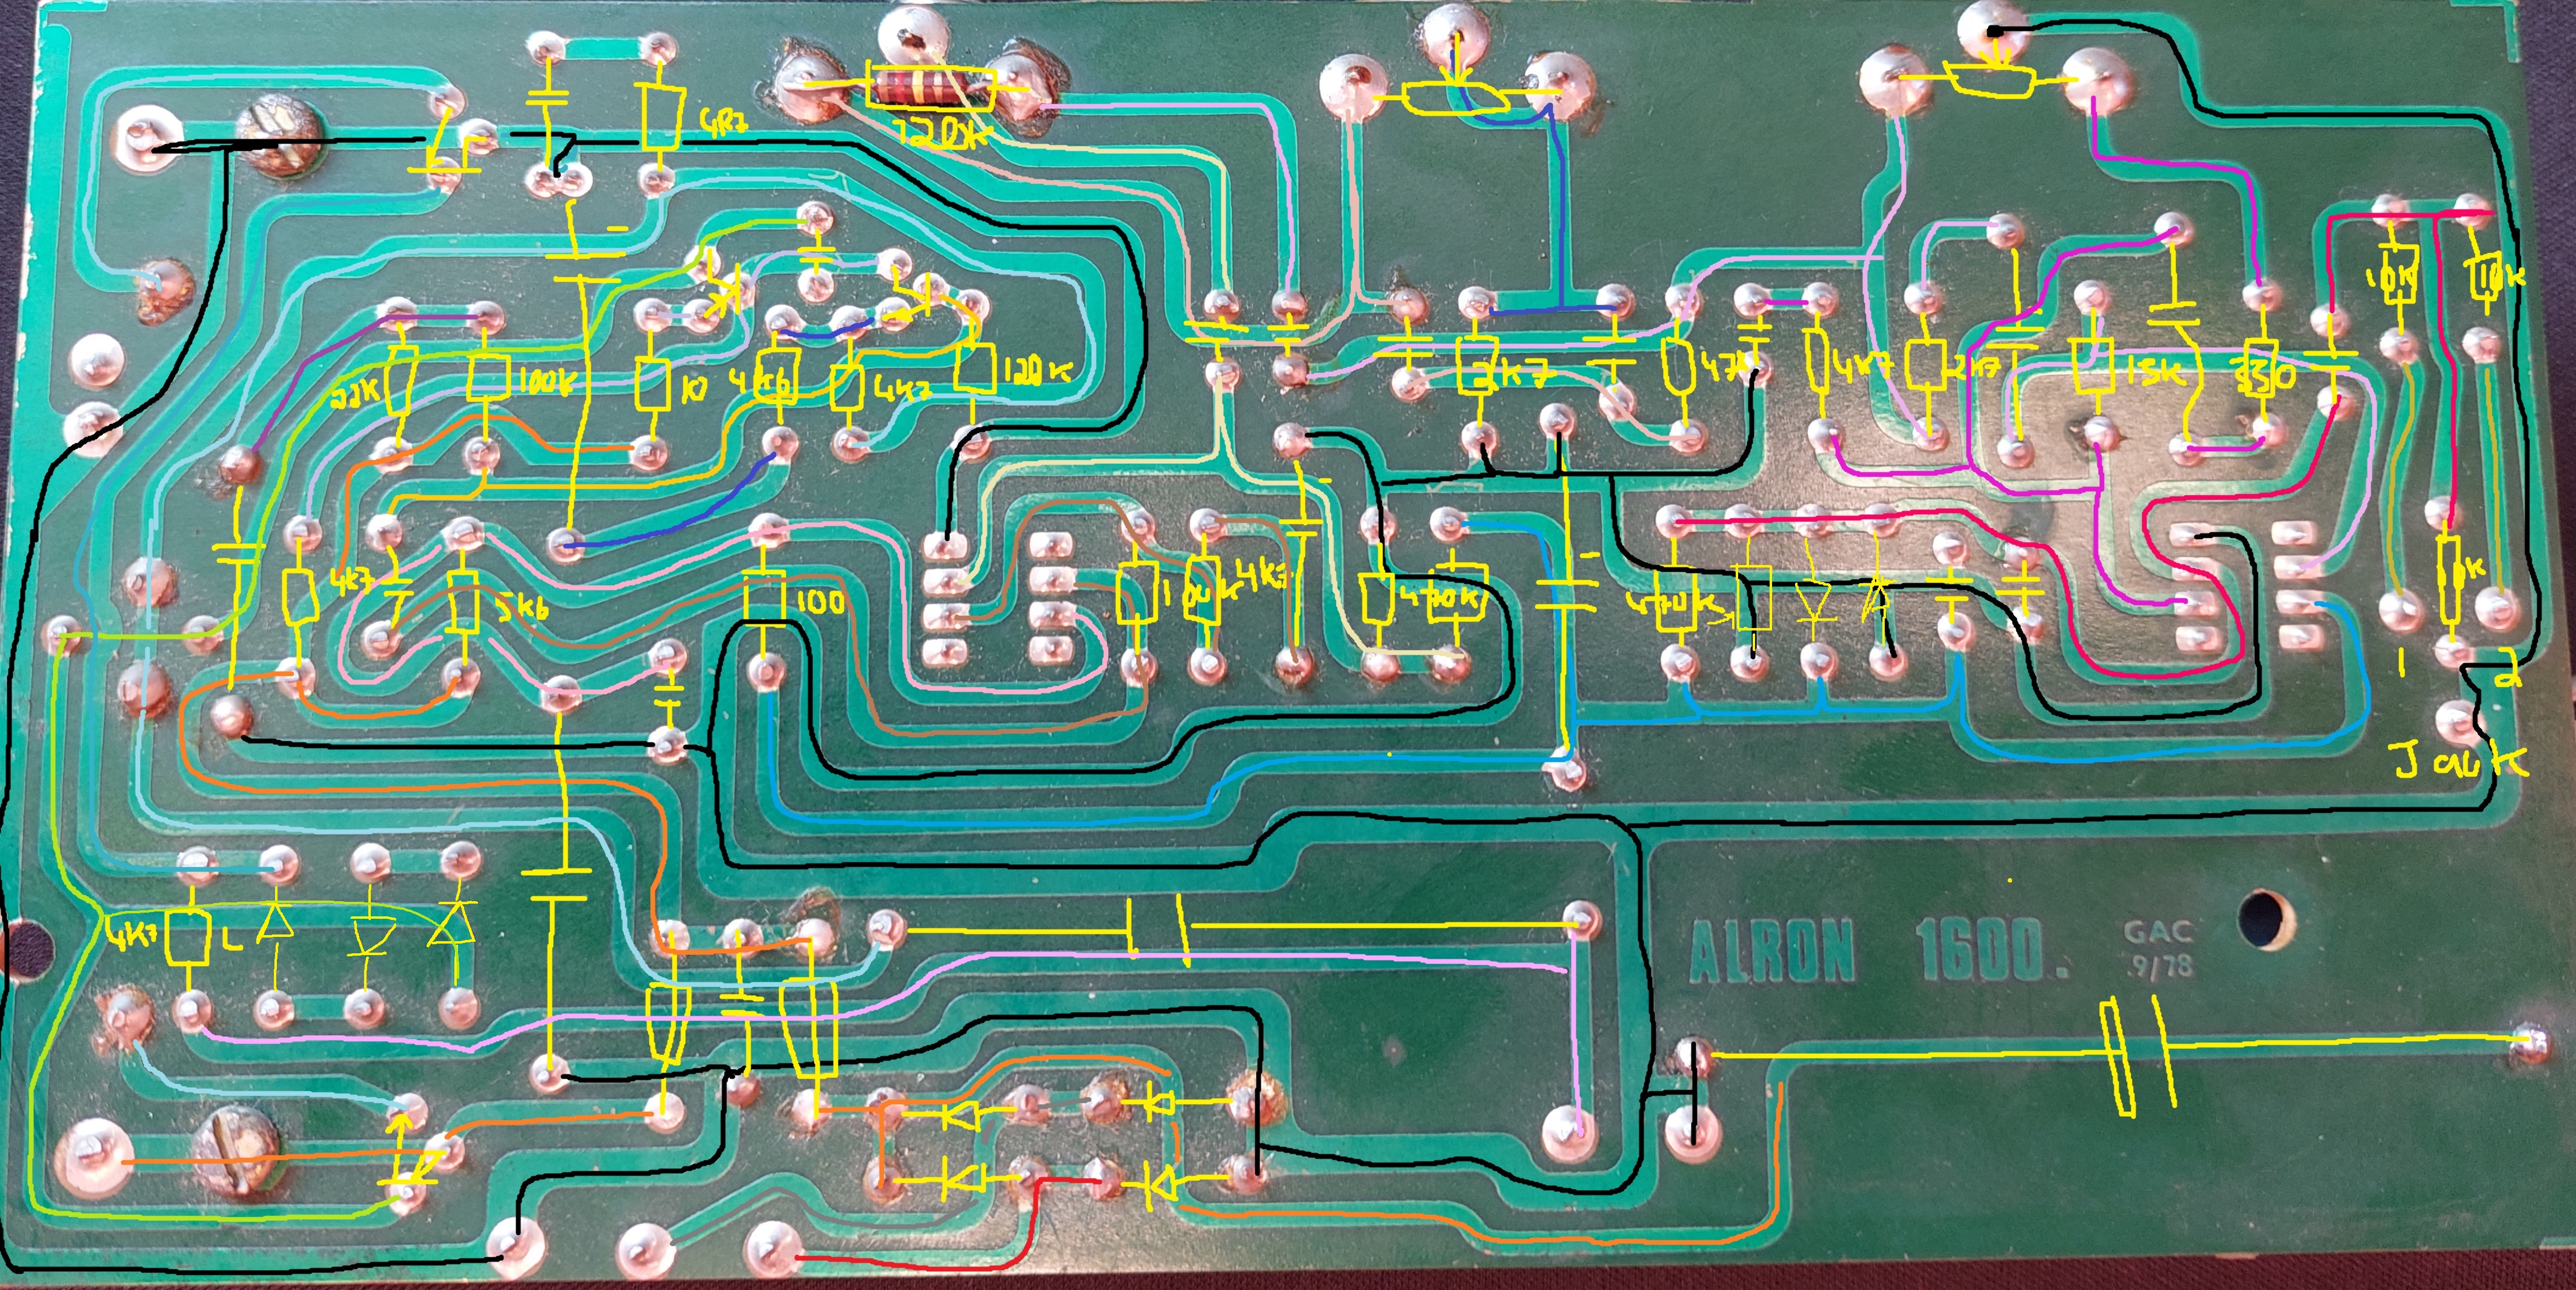 4R7
120K
10K
10K
22K
100K
10
4k6
4K7
120K
2k7
47k
4K7
2k7
15K
330
4k7
5k6
100
100k
4k7
470k
1k
1
2
Jack
4K7
ALRON 1600.
GAC
9/78